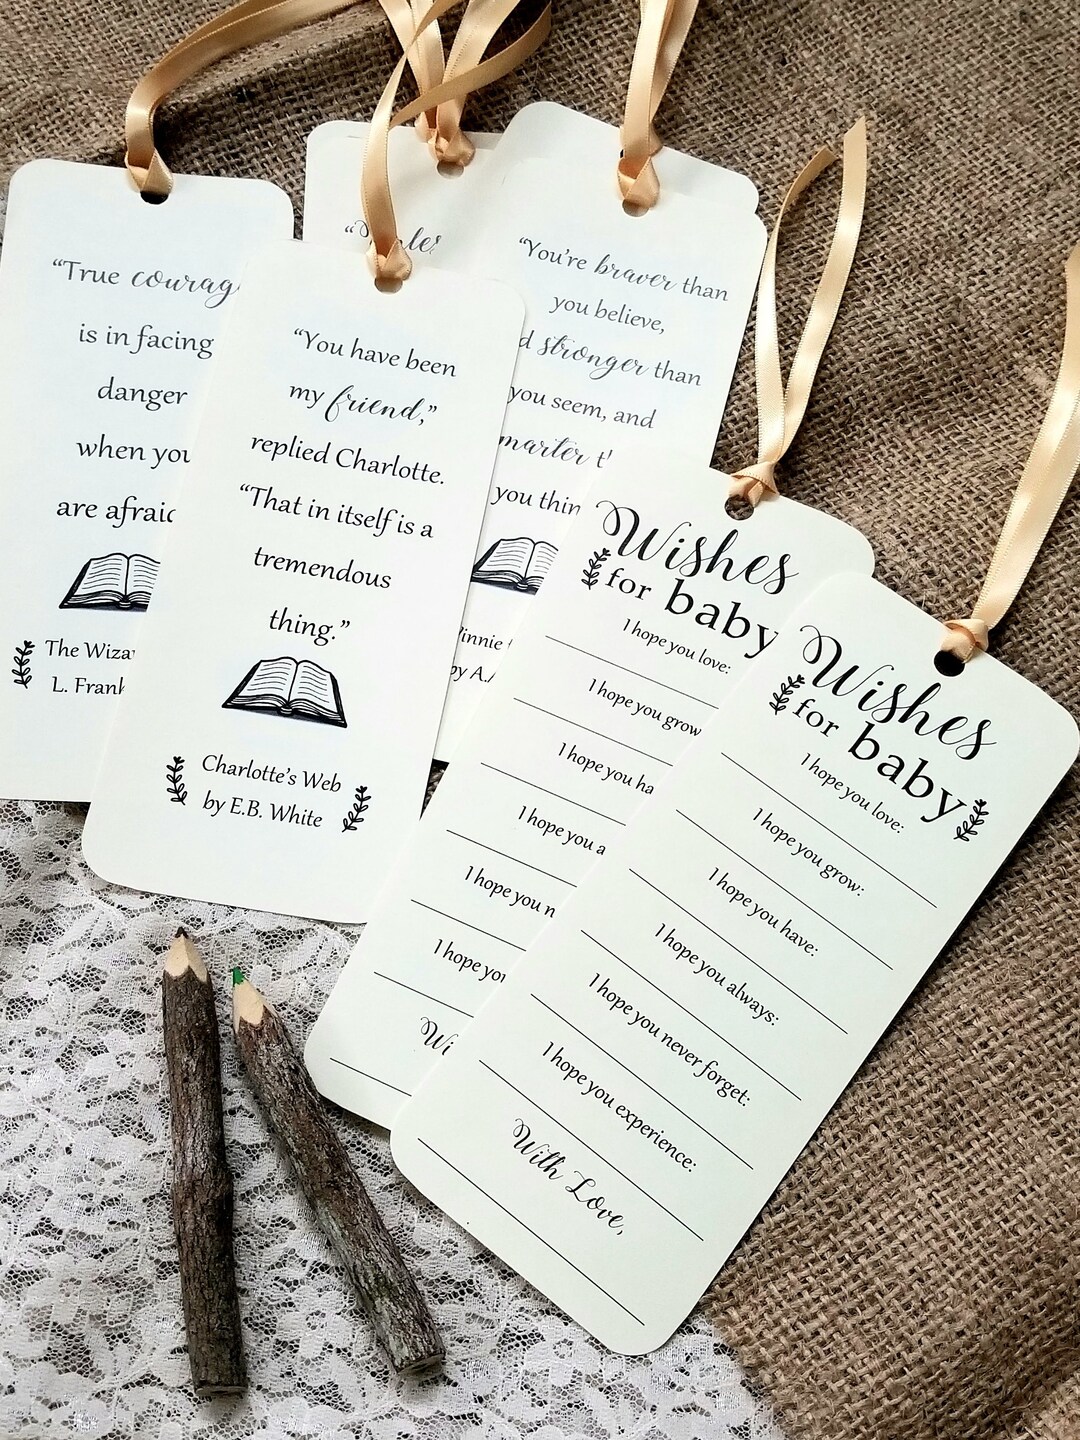 “True
is in facing
danger
when you
are afraid
The
L. Frank
“You have been
my friend,”
replied Charlotte.
“That in itself is a
tremendous
thing.”
Charlotte’s Web
by E.B. White
“You’re braver than
you believe,
stronger than
you seem, and
you
by
Wishes
for baby
I hope you love:
I hope you grow
I hope you
I hope you
I hope you
I hope
Wishes
for baby
I hope you love:
I hope you grow:
I hope you have:
I hope you always:
I hope you never forget:
I hope you experience:
With Love,